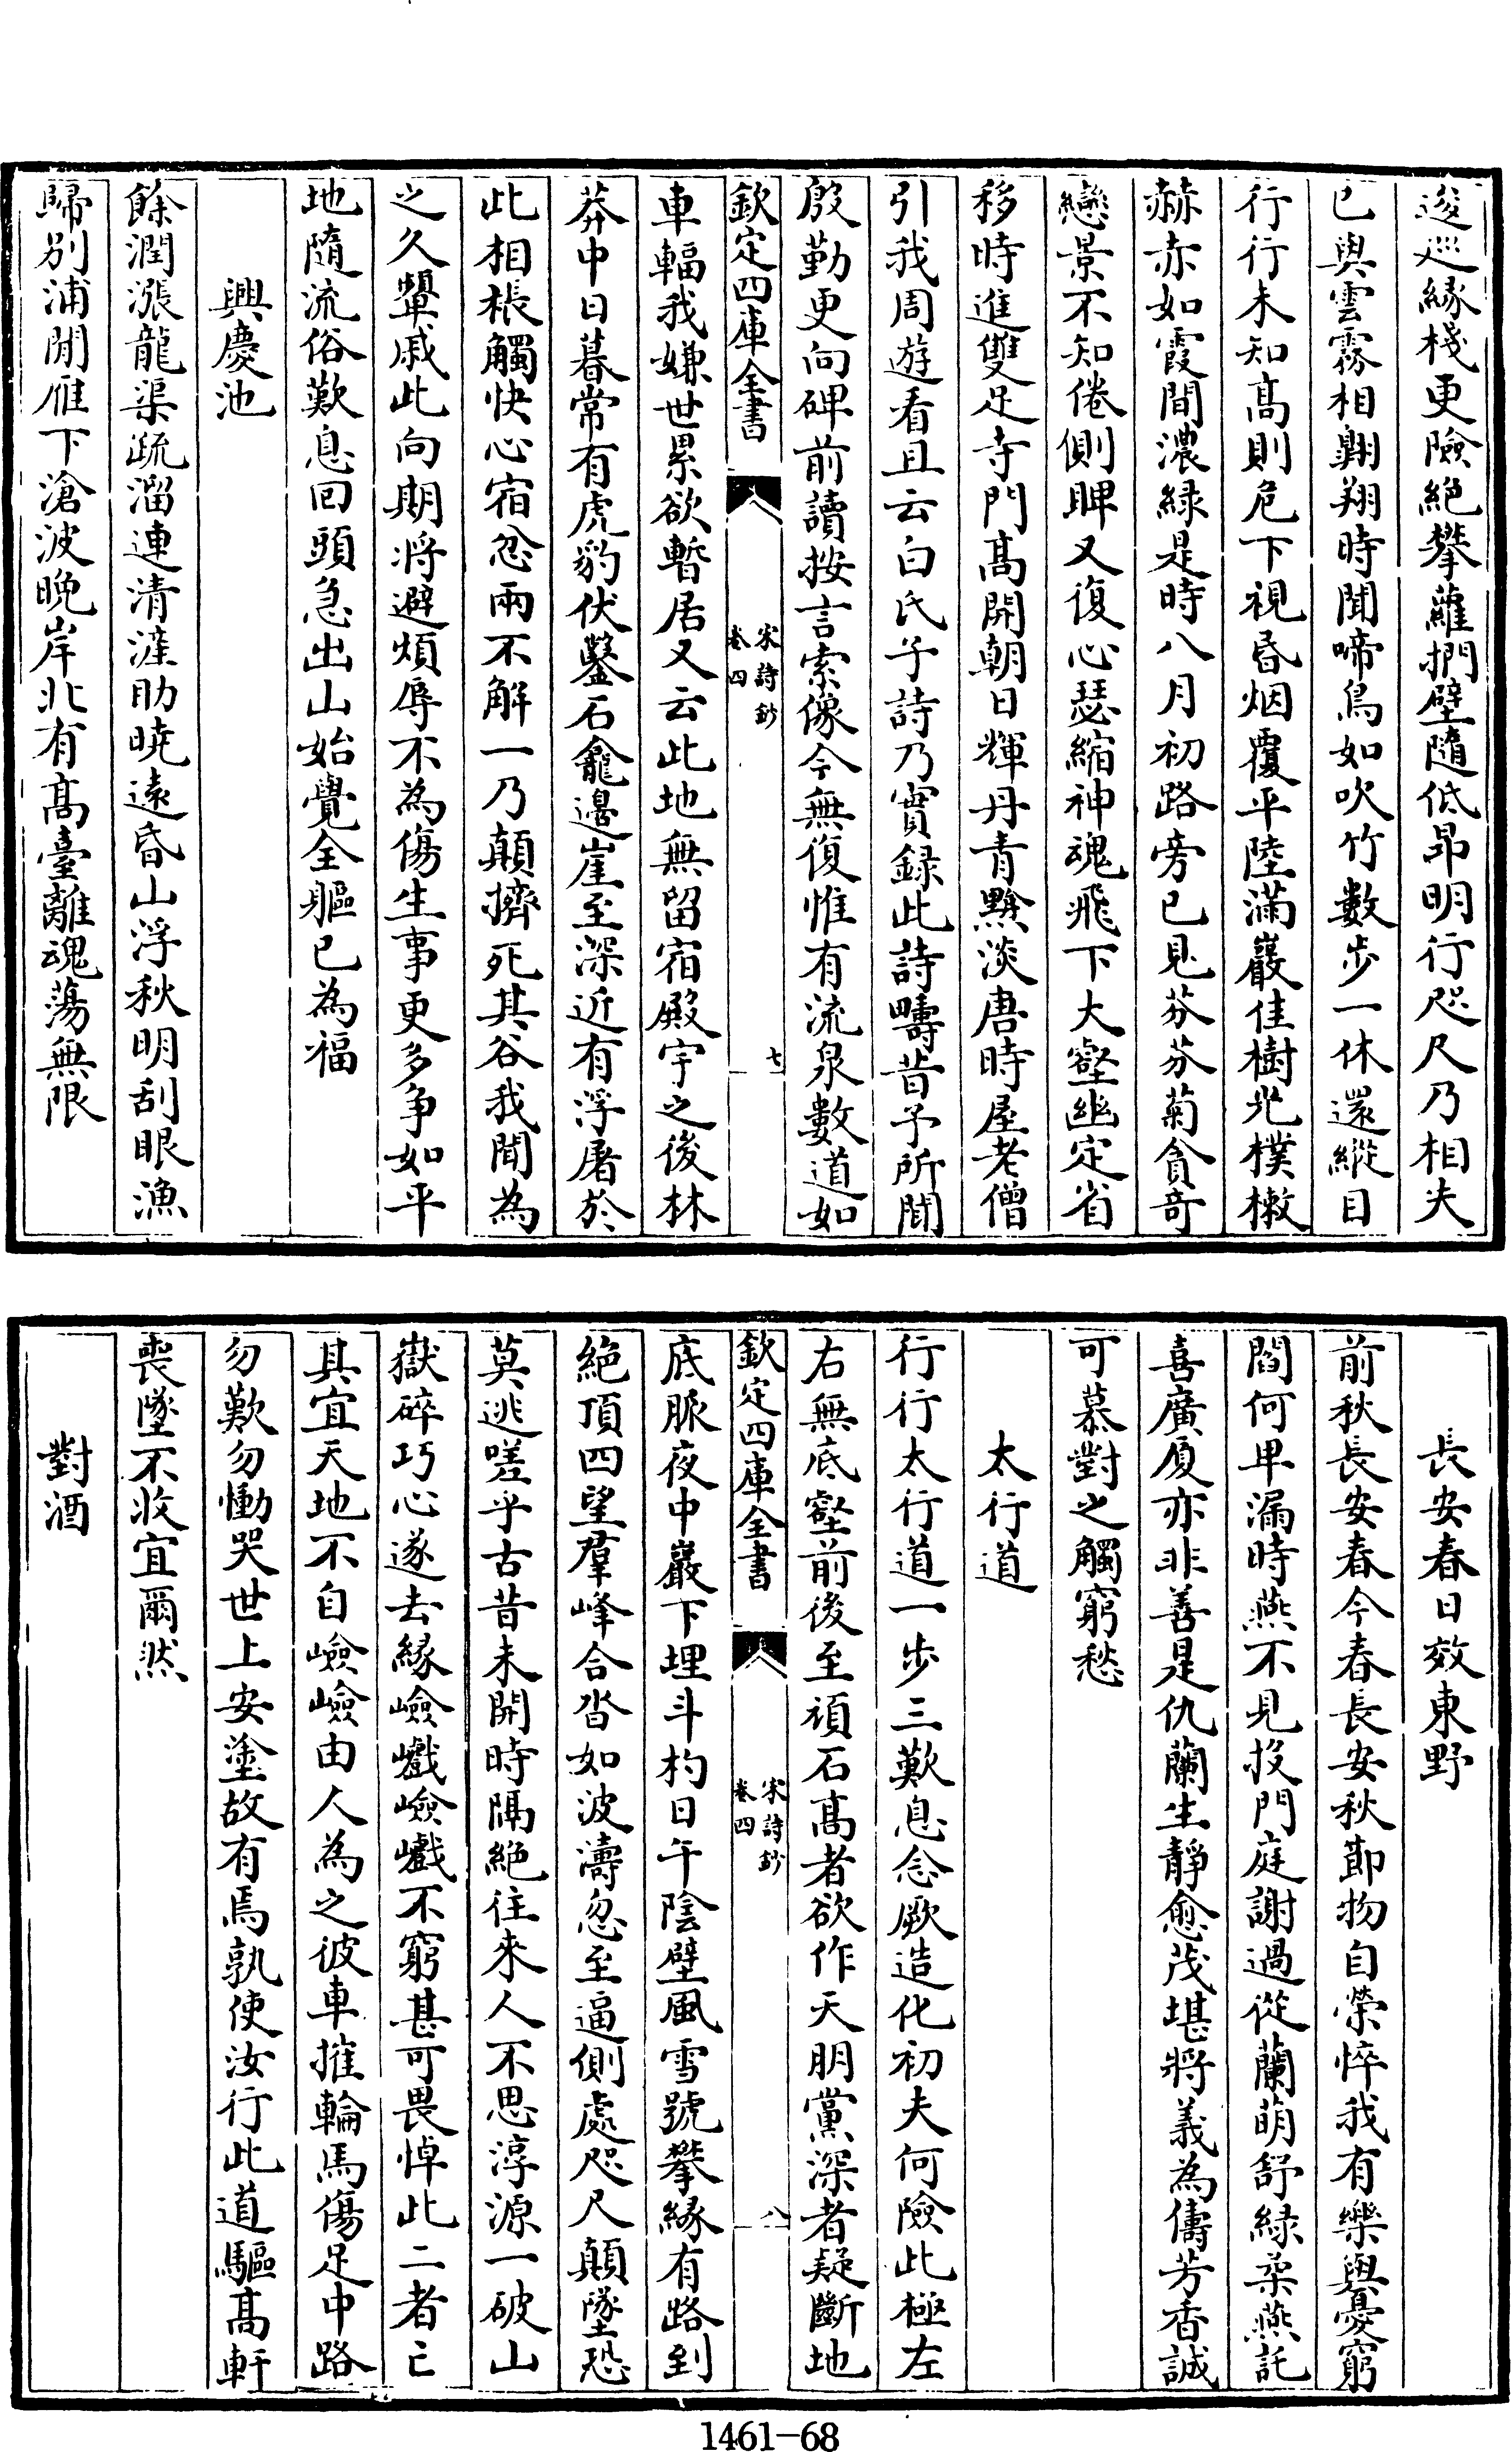 逡巡緣棧更險絶攀蘿捫壁隨低昻明行咫尺乃相失
已與雲霧相翺翔時聞啼鳥如吹竹數步一休還縱目
行行未知髙則危下視昏烟覆平陸滿巖佳樹光樸樕
赫赤如霞間濃緑是時八月初路旁已見芬芬菊貪竒
戀景不知倦側睥又復心瑟縮神魂飛下大壑幽定省
移時進雙足寺門髙開朝日輝丹青黪淡唐時屋老僧
引我周遊看且云白氏子詩乃實録此詩疇昔予所聞
殷勤更向碑前讀按言索像今無復惟有流泉數道如
欽定四庫全書
宋詩鈔
卷四
七
車輻我嫌世累欲暫居又云此地無留宿殿宇之後林
莽中日暮常有虎豹伏鑿石龕邊崖至深近有浮屠於
此相棖觸快心宿忿兩不解一乃顛擠死其谷我聞為
之久顰戚此向期將避煩辱不為傷生事更多爭如平
地隨流俗歎息回頭急出山始覺全軀已為福
興慶池
餘潤漲龍渠疏溜連清滻助曉遠昏山浮秋明刮眼漁
歸別浦閒雁下滄波晚岸北有髙臺離魂蕩無限
長安春日效東野
前秋長安春今春長安秋節物自榮悴我有樂與憂窮
閻何卑漏時燕不見投門庭謝過從蘭萌舒緑柔燕託
喜廣厦亦非善是仇蘭生靜愈茂堪將義為儔芳香誠
可慕對之觸窮愁
太行道
行行太行道一步三歎息念厥造化初夫何險此極左
右無底壑前後至頑石髙者欲作天朋黨深者疑斷地
欽定四庫全書
宋詩鈔
卷四
八
底脈夜中巖下埋斗杓日午陰壁風雪號攀緣有路到
絶頂四望羣峰合沓如波濤忽至逼側處咫尺顛墜恐
莫逃嗟乎古昔未開時隔絶往來人不思淳源一破山
嶽碎巧心遂去緣嶮巇嶮巇不窮甚可畏悼此二者亡
其宜天地不自嶮嶮由人為之彼車摧輪馬傷足中路
勿歎勿慟哭世上安塗故有焉孰使汝行此道驅髙軒
喪墜不收宜爾然
對酒
1461-68